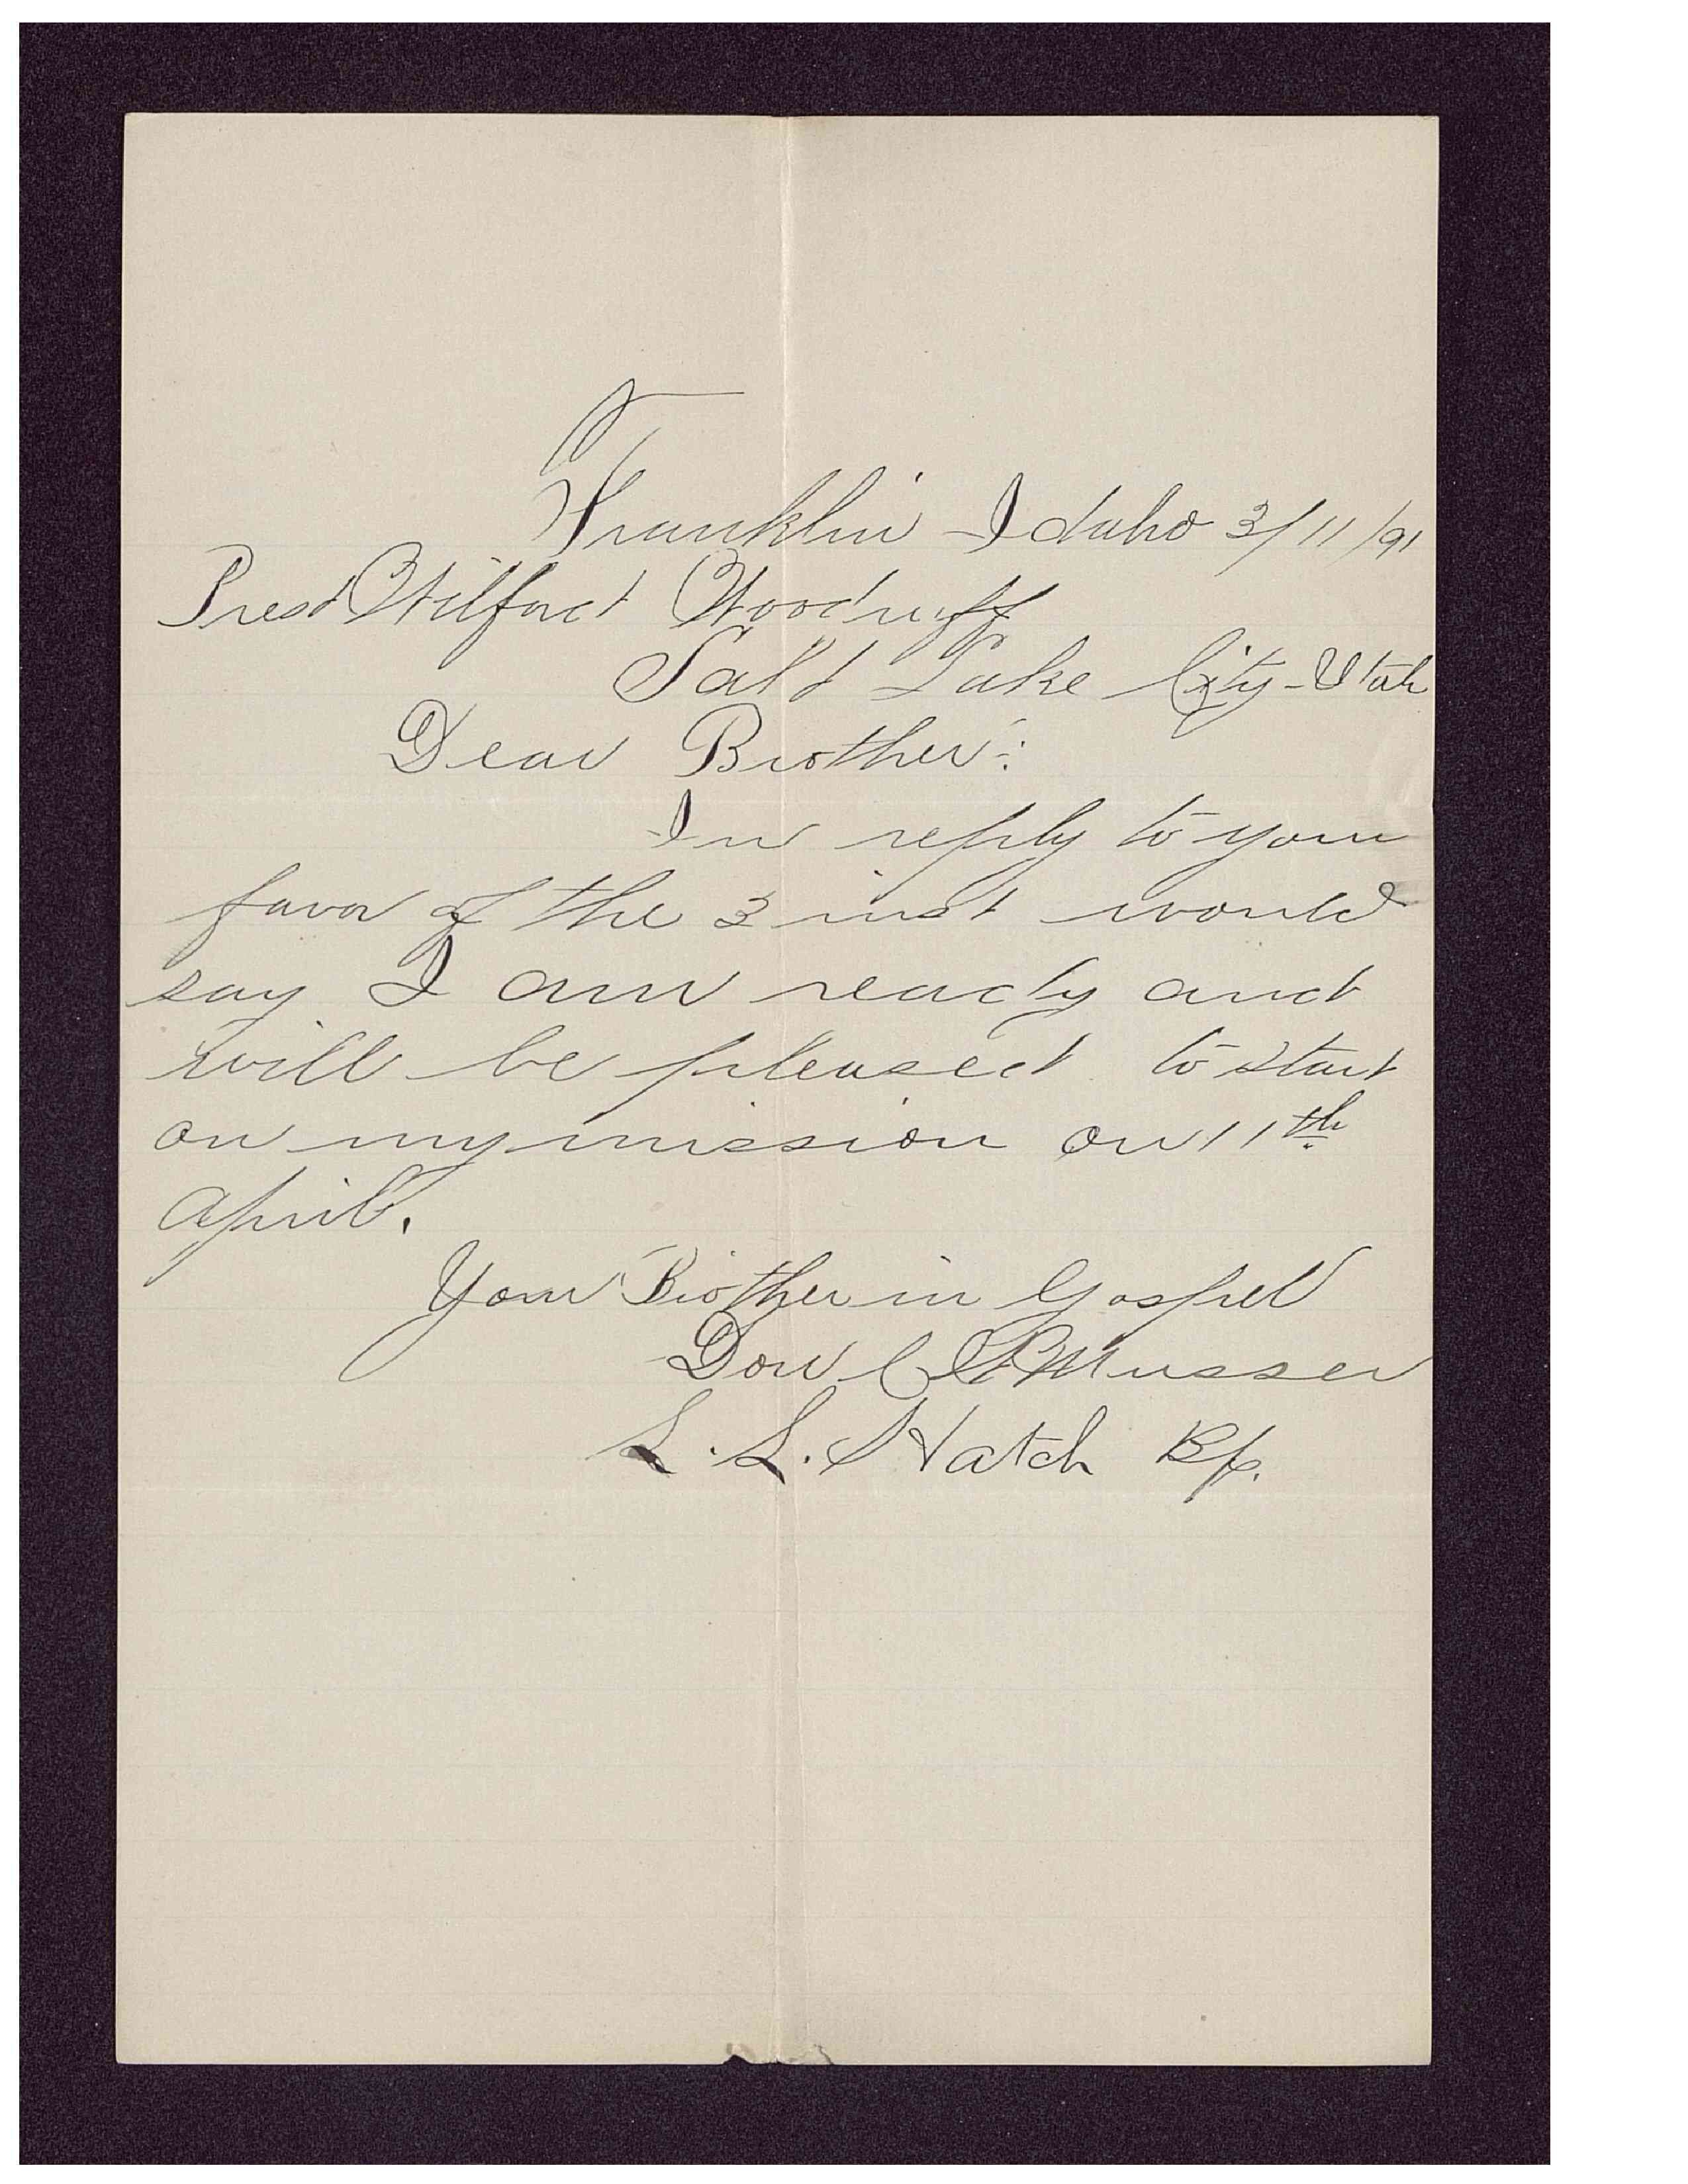 Franklin Idaho 3/11/91
Prest Wilford Woodruff
Salt Lake City - Utah
Dear Brother:
In reply to your
favor of the 3 inst would
say I am ready and
will be pleased to start
on my mission on 11th
April.
Your Brother in Gospel
Don C Musser
L. L. Hatch Bp.